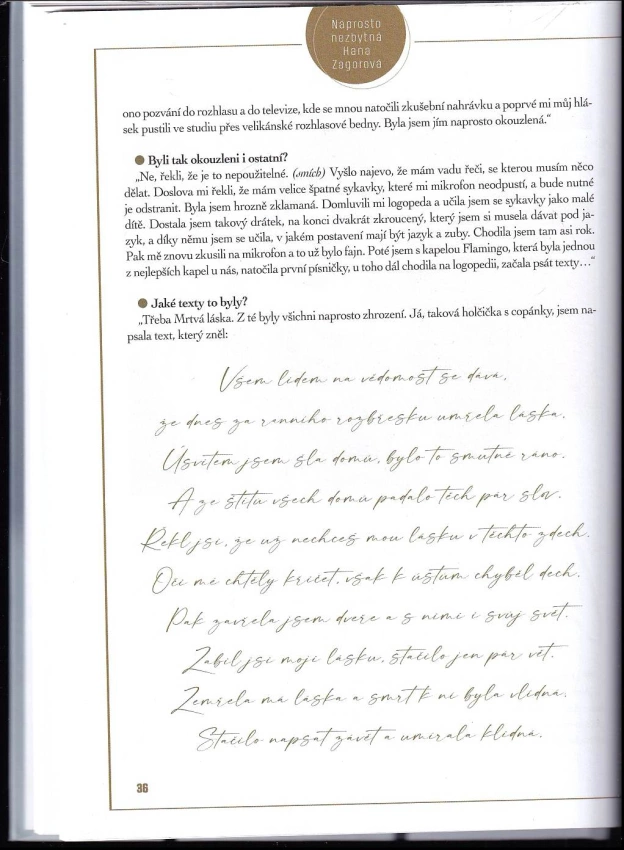 Naprosto
nezbytná
Hana
Zagorová
ono pozvání do rozhlasu a do televize, kde se mnou natočili zkušební nahrávku a poprvé mi můj hlá-
sek pustili ve studiu přes velikánské rozhlasové bedny. Byla jsem jím naprosto okouzlená.“
● Byli tak okouzleni i ostatní?
„Ne, řekli, že je to nepoužitelné. (smích) Vyšlo najevo, že mám vadu řeči, se kterou musím něco
dělat. Doslova mi řekli, že mám velice špatné sykavky, které mi mikrofon neodpustí, a bude nutné
je odstranit. Byla jsem hrozně zklamaná. Domluvili mi logopeda a učila jsem se sykavky jako malé
dítě. Dostala jsem takový drátek, na konci dvakrát zkroucený, který jsem si musela dávat pod ja-
zyk, a díky němu jsem se učila, v jakém postavení mají být jazyk a zuby. Chodila jsem tam asi rok.
Pak mě znovu zkusili na mikrofon a to už bylo fajn. Poté jsem s kapelou Flamingo, která byla jednou
z nejlepších kapel u nás, natočila první písničky, u toho dál chodila na logopedii, začala psát texty…“
● Jaké texty to byly?
„Třeba Mrtvá láska. Z té byly všichni naprosto zhrození. Já, taková holčička s copánky, jsem na-
psala text, který zněl:
Všem lidem na vědomost se dává,
že dnes za ranního rozbřesku umřela láska.
Úsvitem jsem šla domů, bylo to smutné ráno.
A ze štítů všech domů padalo těch pár slov.
Řekl jsi, že už nechceš mou lásku v těchto zdech.
Oči mé chtěly křičet, však k ústům chyběl dech.
Pak zavřela jsem dveře a s nimi i svůj svět.
Zabil jsi moji lásku, stačilo jen pár vět.
Zemřela má láska a smrt k ní byla vlídná.
Stačilo napsat závěť a umírala klidná.
36